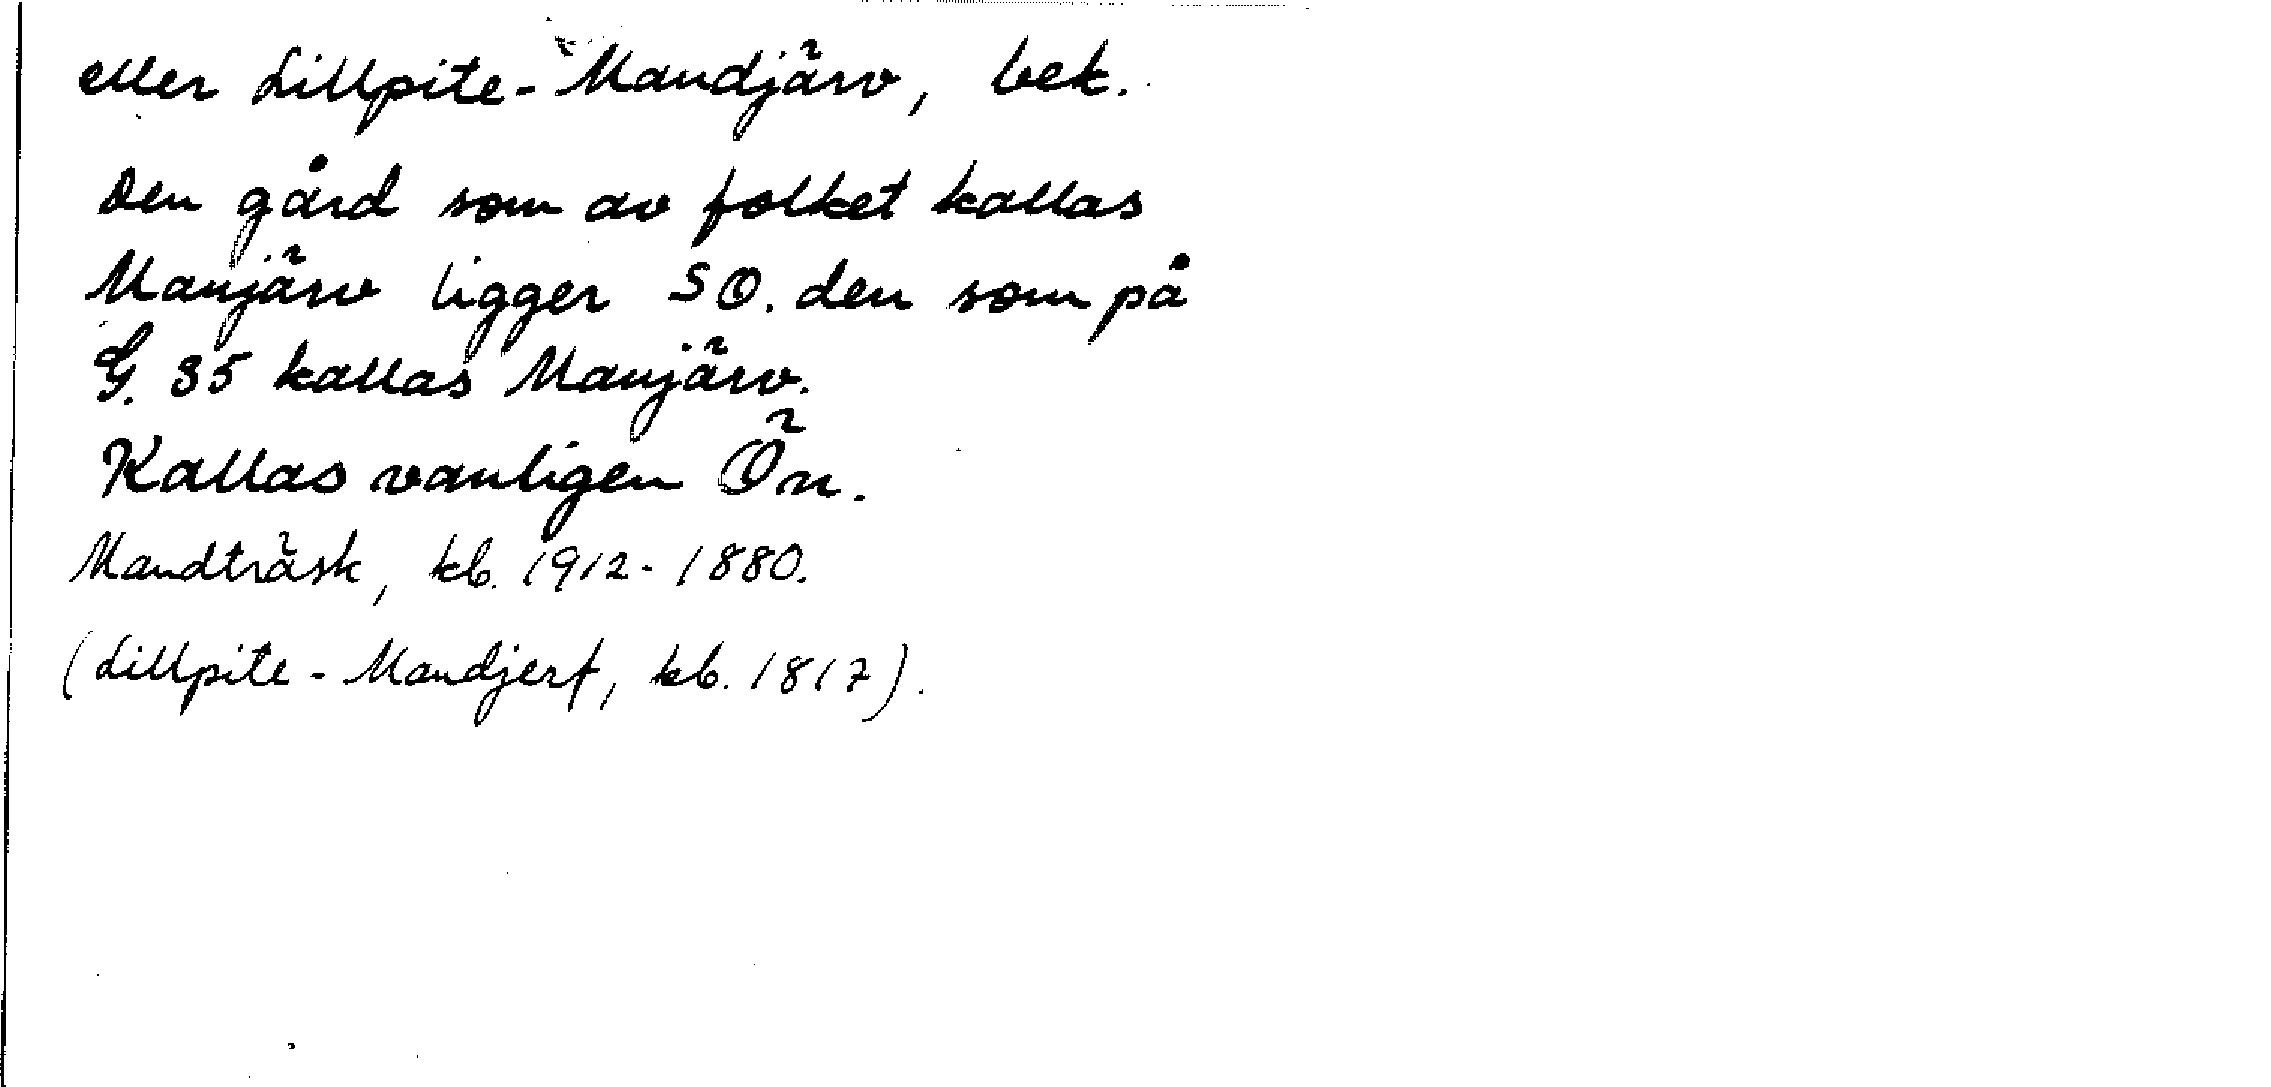 eller Lillpite-Mandjärv, bek.
Den gård som av folket kallas
Manjärv ligger SO. den som på
G. 35 kallas Manjärv.
Kallas vanligen Ön.
Mandträsk, kb. 1912-1880.
(Lillpite-Mandjerf, kb. 1817).